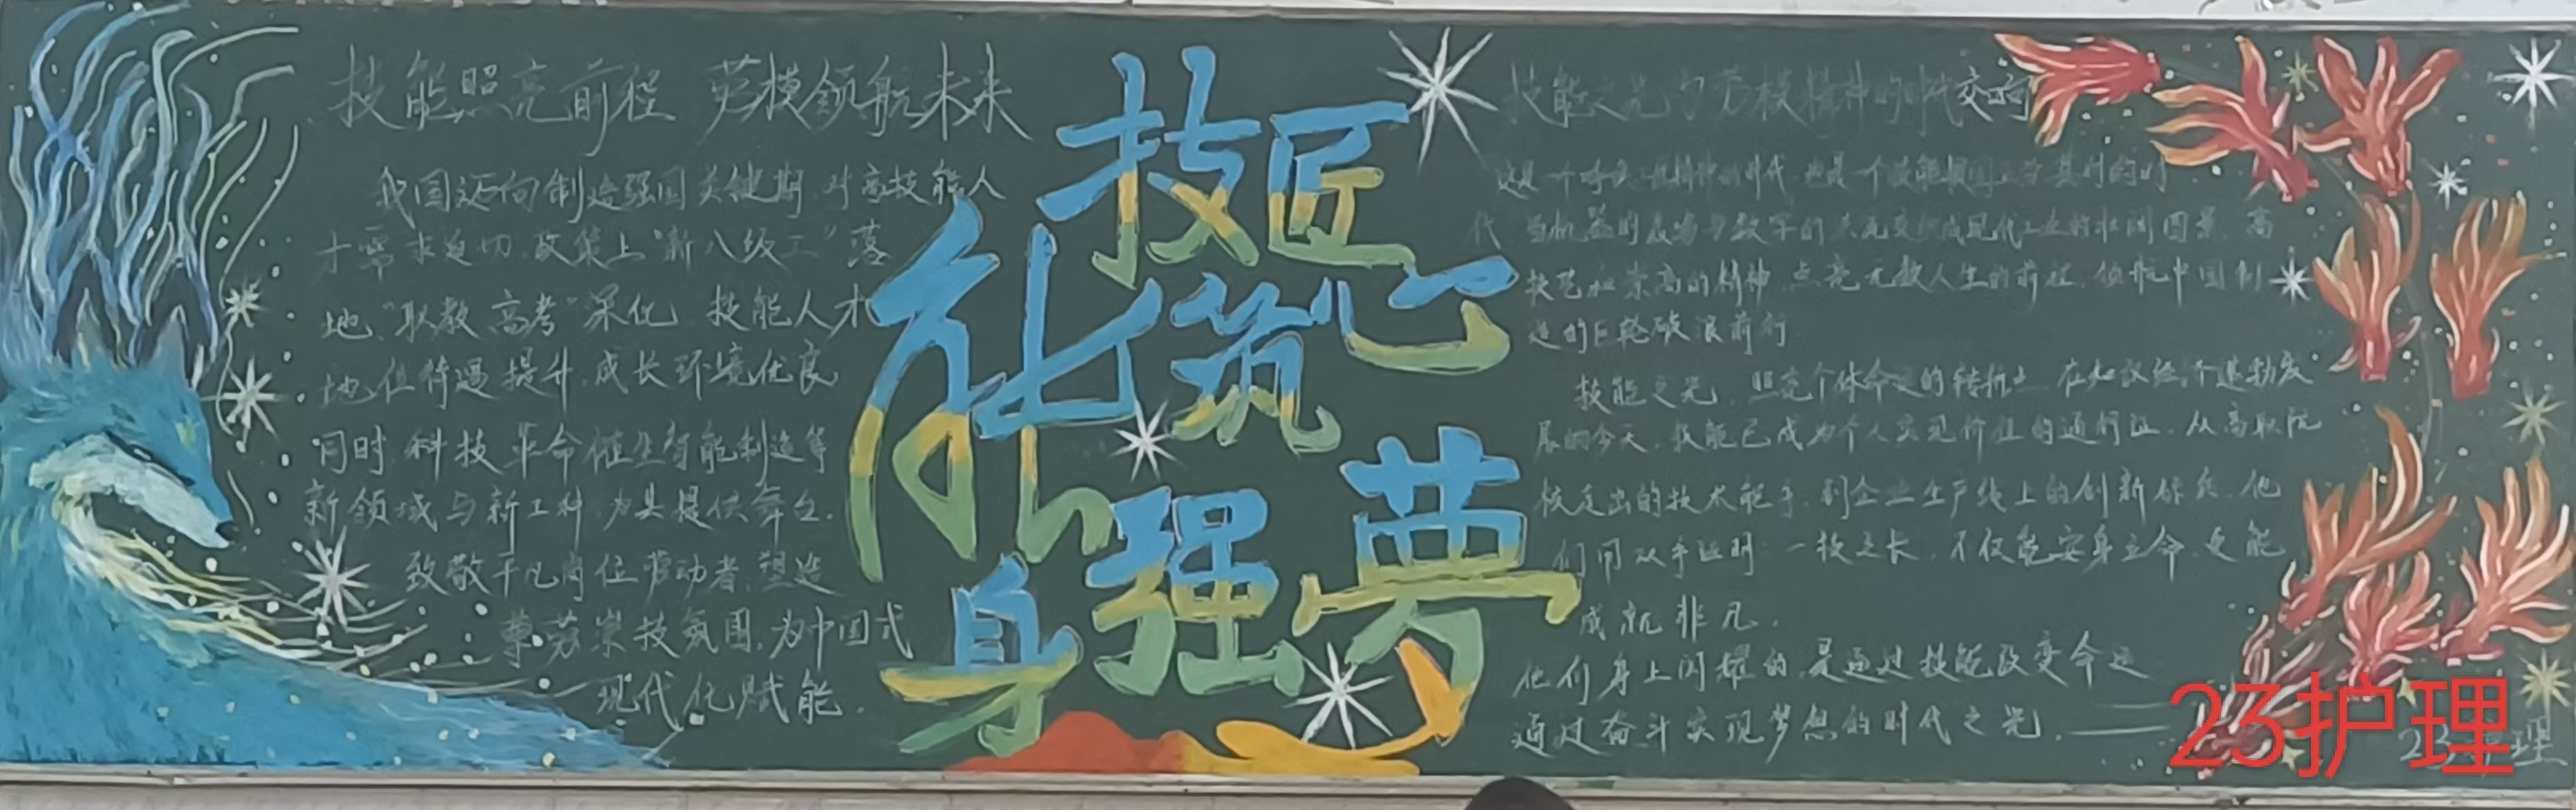 技能照亮前程 劳模领航未来
我国迈向制造强国关键期,对高技能人
才需求迫切,政策上“新八级工”落
地、“职教高考”深化,技能人才
地位待遇提升,成长环境优良
同时,科技革命催生智能制造等
新领域与新工科,为其提供舞台.
致敬平凡岗位劳动者,塑造
尊劳崇技氛围,为中国式
现代化赋能.
技能
匠心
筑
强
身
劳
技能之光与劳模精神的时代交响
这是一个 精神的时代,也是一个技能报国 的时
代 当机器的轰鸣与数字的 交织成现代工业的壮阔图景,高
技艺和崇高的精神,点亮无数人生的前程,领航中国制
造的巨轮破浪前行
技能之光,照亮个体命运的转折点,在知识经济蓬勃发
展的今天,技能已成为个人实见价值的通行证,从高职院
校走出的技术能手,到企业生产线上的创新标兵,他
们用双手证明:一技之长,不仅能安身立命,更能
成就非凡.
他们身上闪耀的,是通过技能改变命运
通过奋斗实现梦想的时代之光.——
23护理
23护理